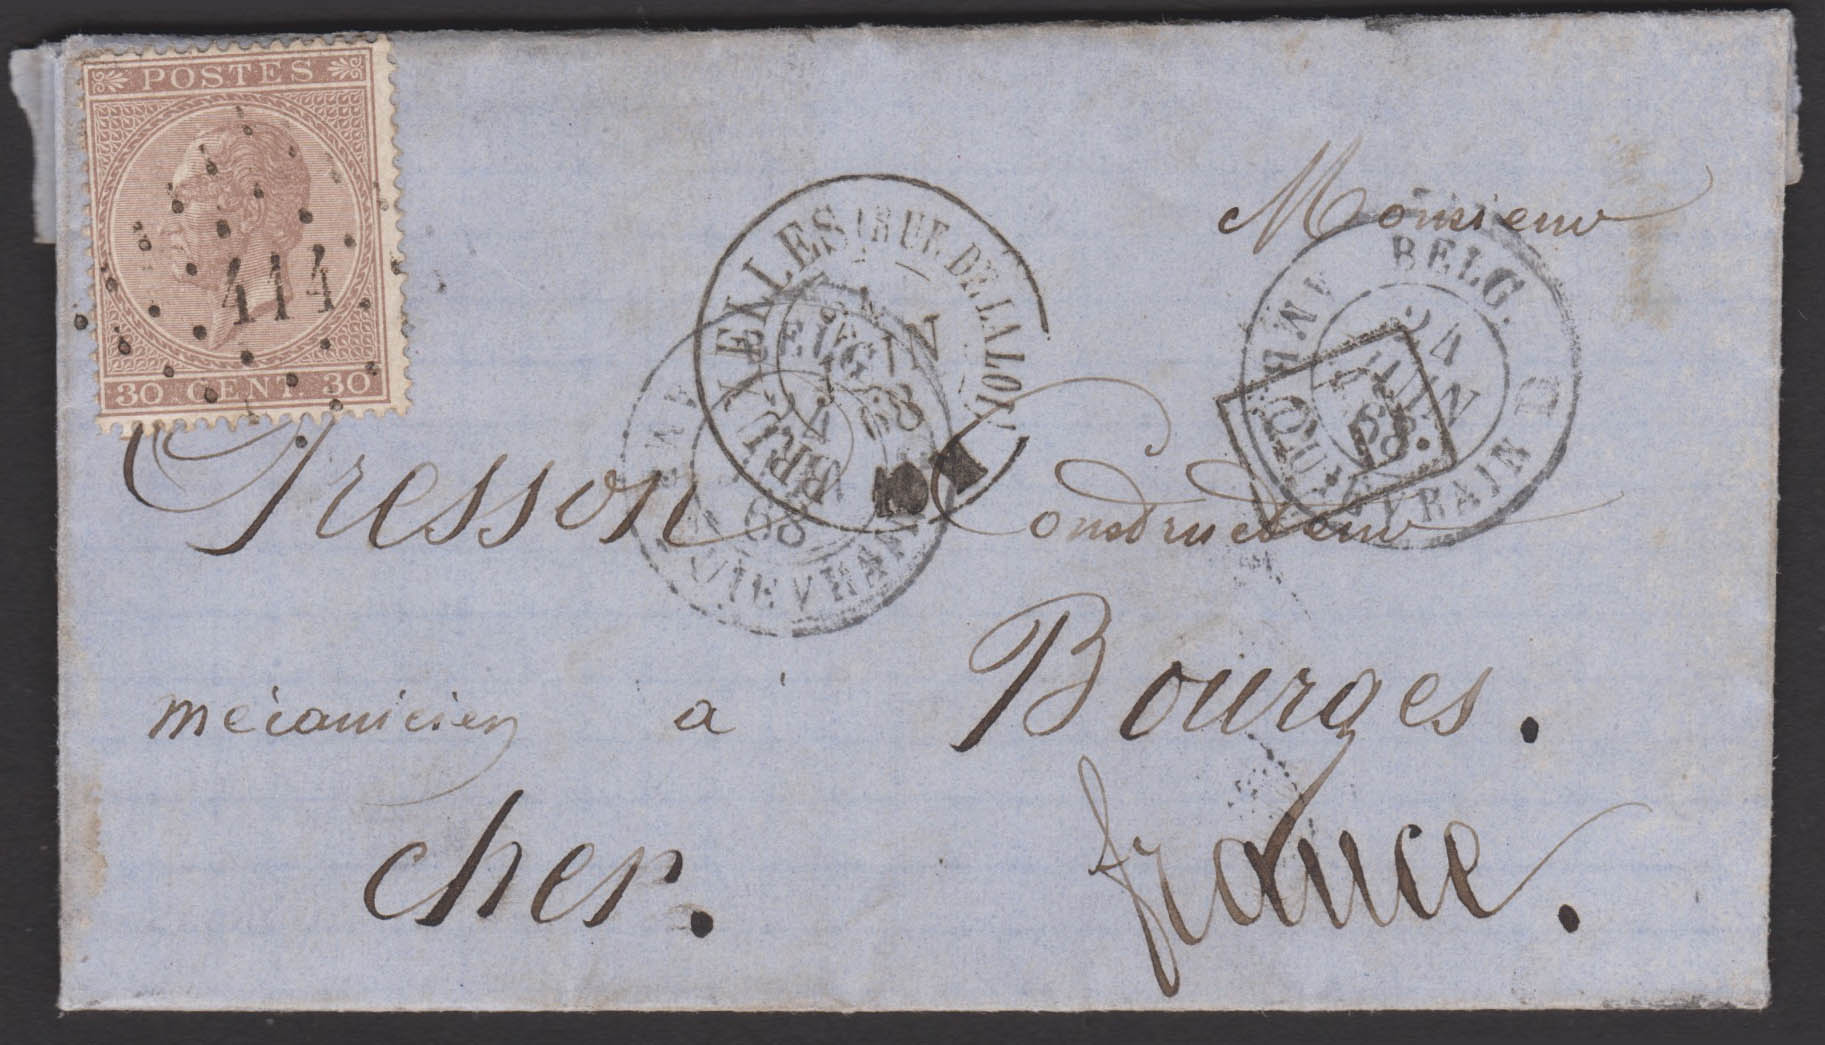 POSTES
30 CENT. 30
414
BRUXELLES (RUE DE LA LOI)
68
BELG.
24
JUIN
68
QUIÉVRAIN
P.D.
Monsieur
Presson Constructeur
mécanicien à Bourges.
Cher. france.